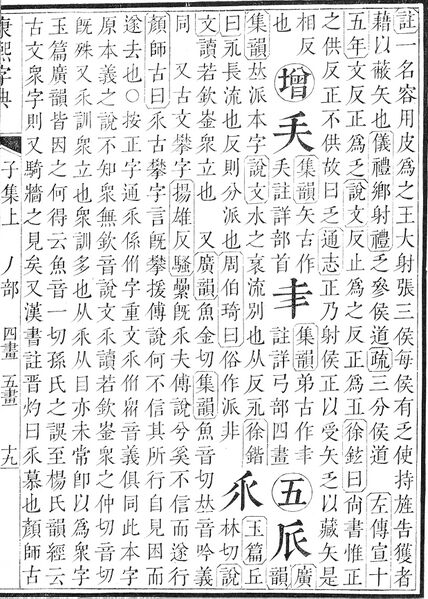 註一名容用皮爲之王大射張三侯每侯有乏使持旌告獲者
藉以蔽矢也儀禮鄕射禮乏參侯道疏三分侯道 左傳宣十
五年文反正爲乏說文反止爲之反正爲五徐鉉曰尙書惟正
之供反正不供故曰乏通志正乃射侯正以受矢乏以藏矢是
相反也 增 𠂕 集韻矢古作𠂕註詳部首 𢎨 集韻弟古作𢎨註詳弓部四畫 五 𠂢 廣韻
集韻𠀤派本字說文水之衺流別也从反永徐鍇
曰永長流也反則分派也周伯琦曰俗作派非 乑 玉篇丘林切說
文讀若欽崟衆立也 又廣韻魚金切集韻魚音切𠀤音吟義
同 又古文攀字揚雄反騷纍旣乑夫傅說兮奚不信而遂行
顏師古曰乑古攀字言旣攀援傅說何不信其所行自見因而
遂去也○按正字通乑係㐺字重文乑㐺㸚音義俱同此本字
原本義之說不知衆無欽音說文乑讀若欽崟衆之仲切音切
旣殊又乑訓衆立也衆訓多也从乑从目亦未常卽以爲衆字
玉篇廣韻皆因之何得云魚音一切孫氏之誤至楊氏韻經云
古文衆字則又騎牆之見矣又漢書註晉灼曰乑慕也顏師古
康熙字典 子集上 丿部 四畫 五畫 十九